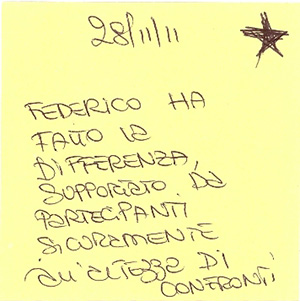 28/11/11
FEDERICO HA
FATTO LA
DIFFERENZA,
SUPPORTATO DA
PARTECIPANTI
SICURAMENTE
ALL'ALTEZZA DI
CONFRONTI